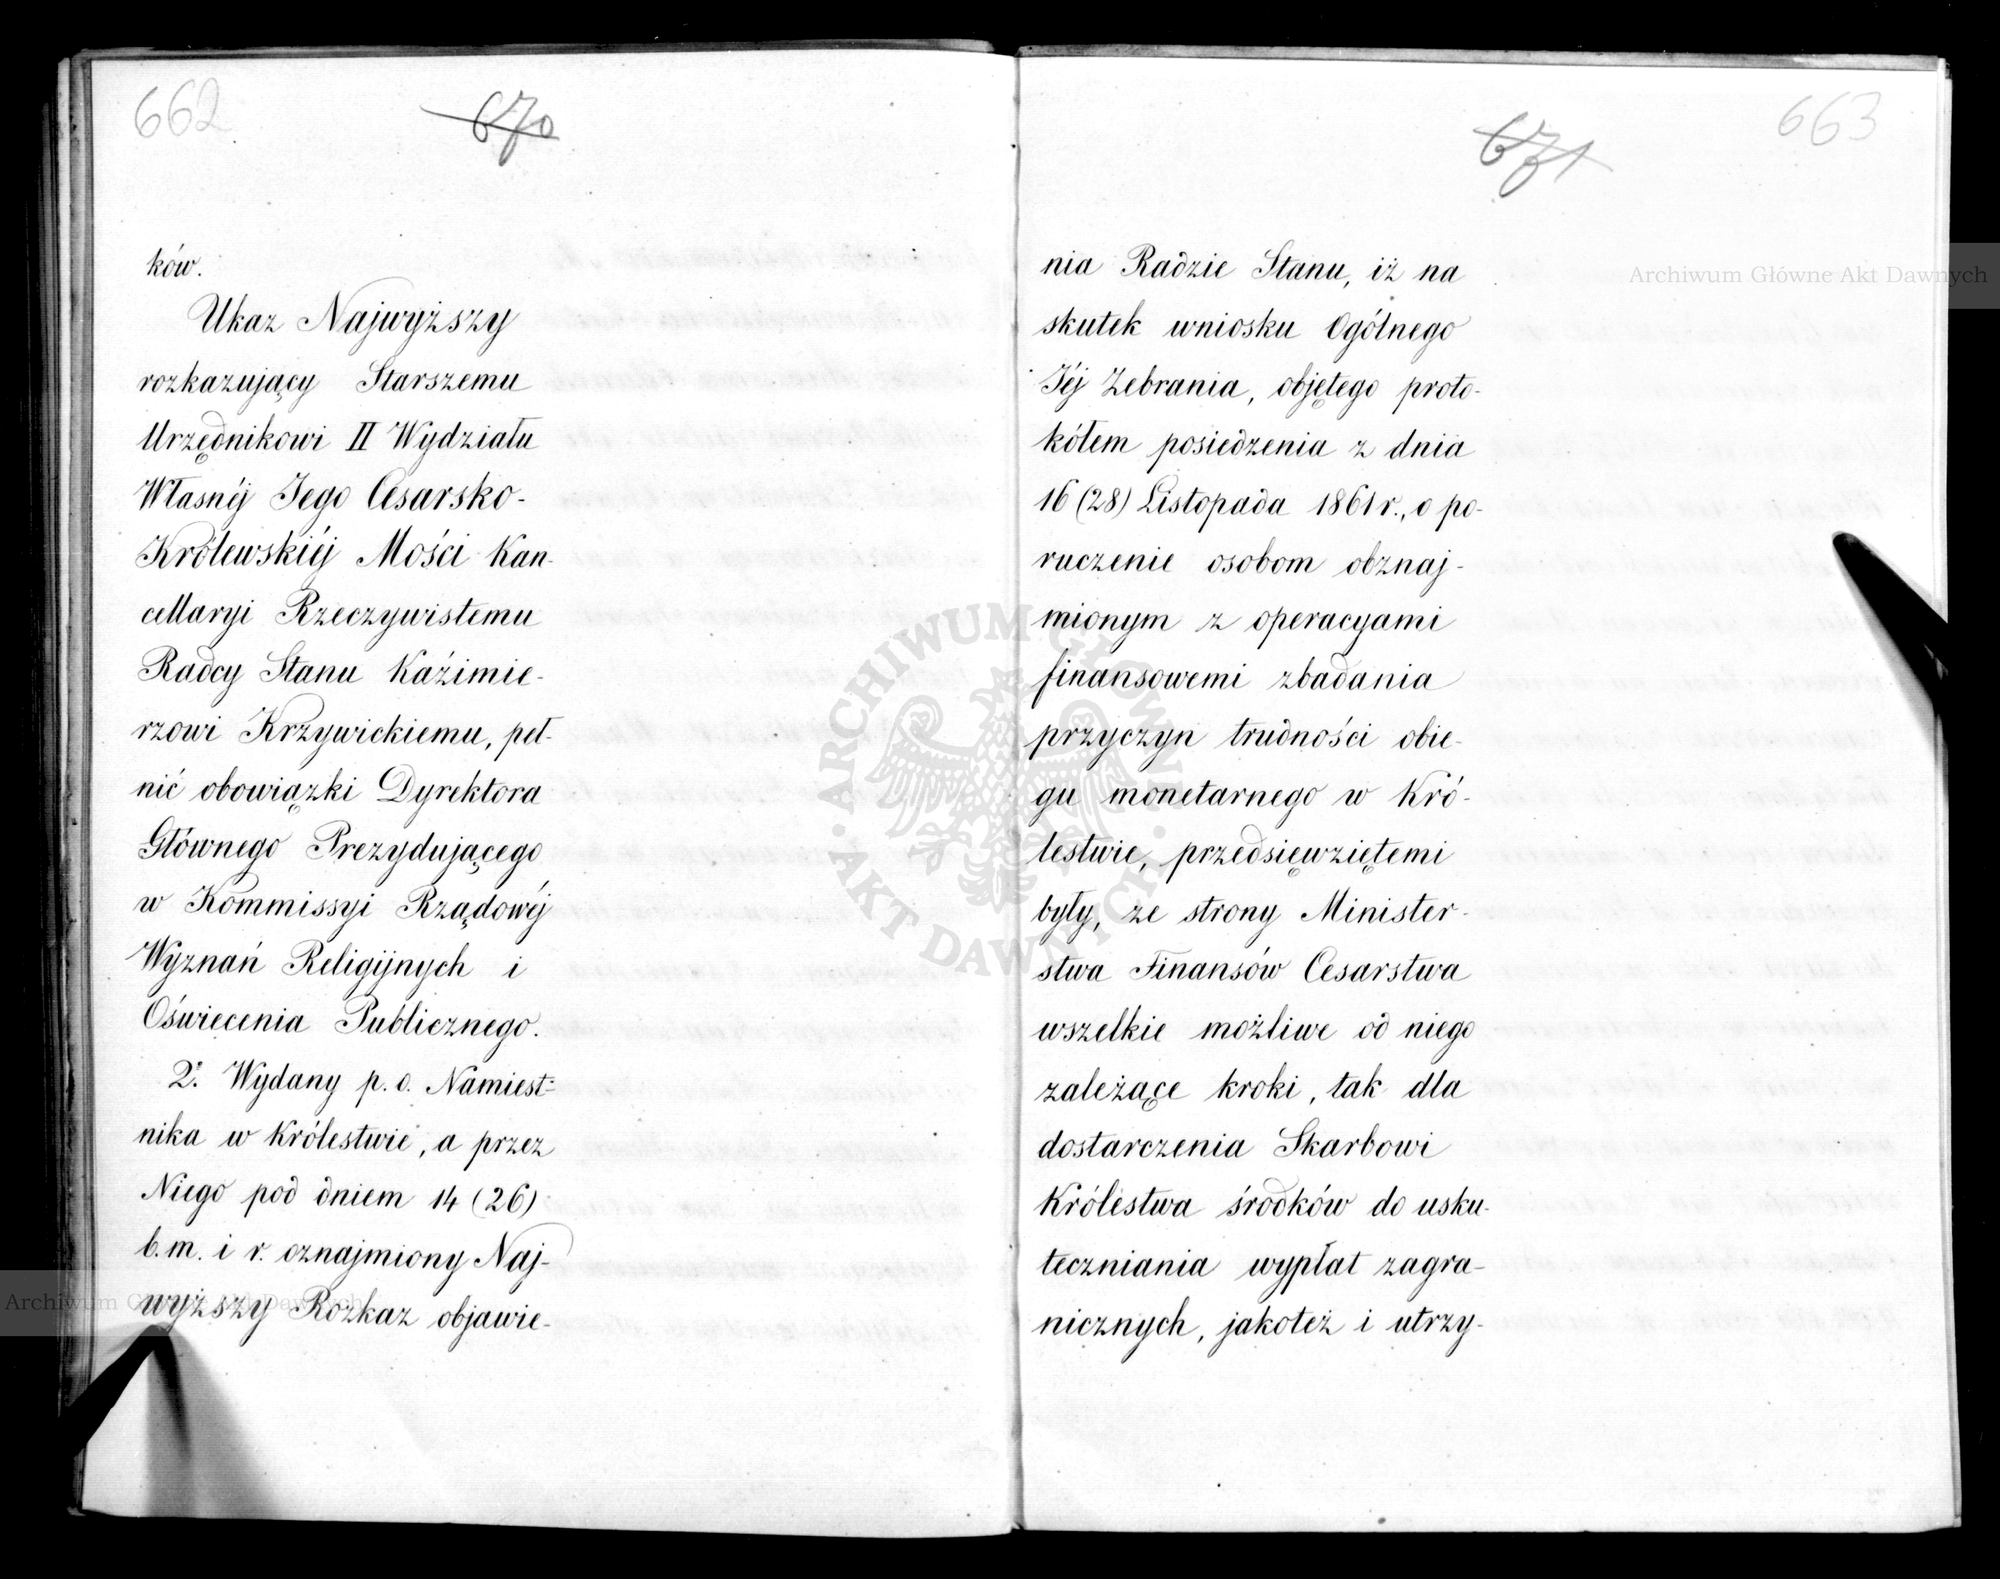 662
670
ków.
Ukaz Najwyższy
rozkazujący Starszemu
Urzędnikowi II Wydziału
Własnéj Jego Cesarsko-
Królewskiéj Mości Kan-
cellaryi Rzeczywistemu
Radcy Stanu Kaźimie-
rzowi Krzywickiemu, peł-
nić obowiązki Dyrektora
Głównego Prezydującego
w Kommissyi Rządowéj
Wyznań Religijnych i
Oświecenia Publicznego.
2. Wydany p. o. Namiest-
nika w Królestwie, a przez
Niego pod dniem 14 (26)
b. m. i r. oznajmiony Naj-
wyższy Rozkaz objawie-
671
663
nia Radzie Stanu, iż na
skutek wniosku Ogólnego
Jéj Zebrania, objętego proto-
kółem posiedzenia z dnia
16 (28) Listopada 1861 r., o po-
ruczenie osobom obznaj-
mionym z operacyami
finansowemi zbadania
przyczyn trudności obie-
gu monetarnego w Kró-
lestwie, przedsięwziętemi
były, ze strony Minister-
stwa Finansów Cesarstwa
wszelkie możliwe od niego
zależące kroki, tak dla
dostarczenia Skarbowi
Królestwa środków do usku-
teczniania wypłat zagra-
nicznych, jakoteż i utrzy-
Archiwum Główne Akt Dawnych
ARCHIWUM GŁÓWNE
AKT DAWNYCH
Archiwum Główne Akt Dawnych